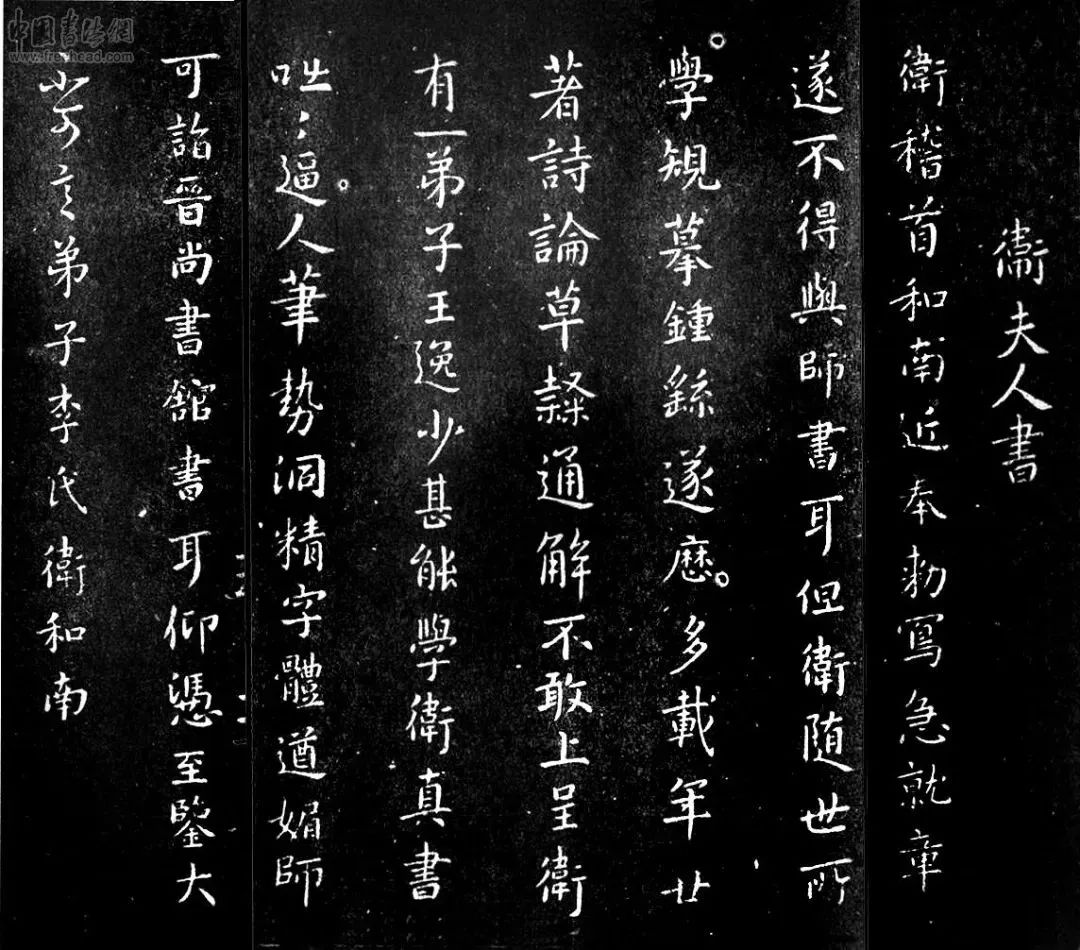 衛夫人書
衛稽首和南近奉勅寫急就章
遂不得與師書耳但衛随世所
學規摹鍾繇遂歷多載年廿
著詩論草隸通解不敢上呈衛
有一弟子王逸少甚能學衛真書
咄〻逼人筆勢洞精字體遒媚師
可詣晉尚書舘書耳仰憑至鑒大
不可言弟子李氏衛和南
中国书法網
www.freehead.com